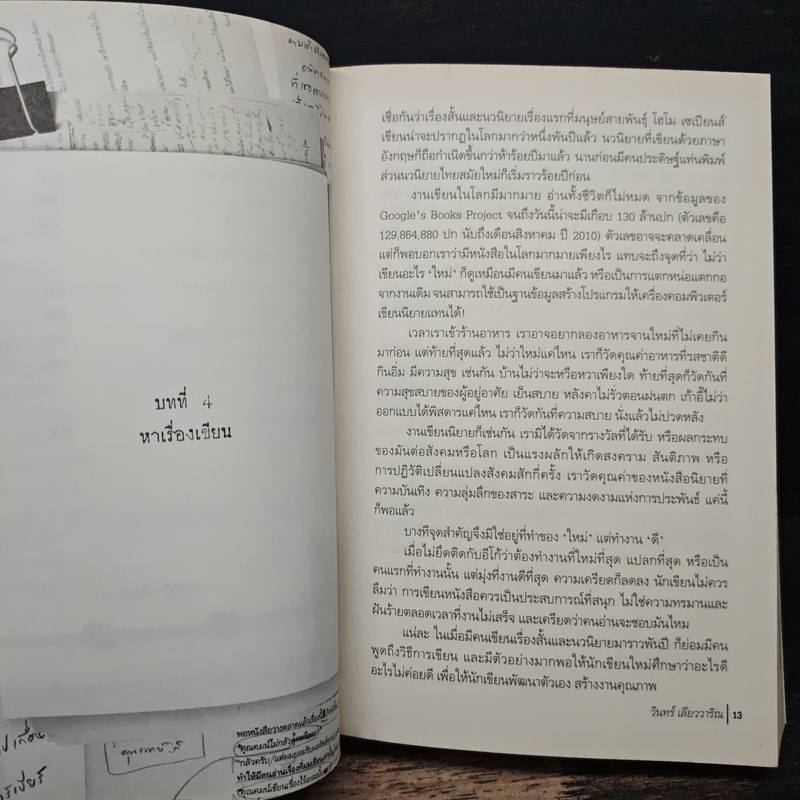 บทที่ 4
หาเรื่องเขียน
พอหนังสือวางตลาดแล้วเรื่องนี้
คุณคมน์ไม่กลัว
เชื่อกันว่าเรื่องสั้นและนวนิยายเรื่องแรกที่มนุษย์สายพันธุ์ โฮโม เซเปียนส์
เขียนน่าจะปรากฏในโลกมากว่าหนึ่งพันปีแล้ว นวนิยายที่เขียนด้วยภาษา
อังกฤษก็ถือกำเนิดขึ้นกว่าห้าร้อยปีมาแล้ว นานก่อนมีคนประดิษฐ์แท่นพิมพ์
ส่วนนวนิยายไทยสมัยใหม่ก็เริ่มราวร้อยปีก่อน
งานเขียนในโลกมีมากมาย อ่านทั้งชีวิตก็ไม่หมด จากข้อมูลของ
Google's Books Project จนถึงวันนี้น่าจะมีเกือบ 130 ล้านปก (ตัวเลขคือ
129,864,880 ปก นับถึงเดือนสิงหาคม ปี 2010) ตัวเลขอาจจะคลาดเคลื่อน
แต่ก็พอบอกเราว่ามีหนังสือในโลกมากมายเพียงไร แทบจะถึงจุดที่ว่า ไม่ว่า
เขียนอะไร 'ใหม่' ก็ดูเหมือนมีคนเขียนมาแล้ว หรือเป็นการแตกหน่อแตกกอ
จากงานเดิม จนสามารถใช้เป็นฐานข้อมูลสร้างโปรแกรมให้เครื่องคอมพิวเตอร์
เขียนนิยายแทนได้!
เวลาเราเข้าร้านอาหาร เราอาจอยากลองอาหารจานใหม่ที่ไม่เคยกิน
มาก่อน แต่ท้ายที่สุดแล้ว ไม่ว่าใหม่แค่ไหน เราก็วัดคุณค่าอาหารที่รสชาติดี
กินอิ่ม มีความสุข เช่นกัน บ้านไม่ว่าจะหวือหวาเพียงใด ท้ายที่สุดก็วัดกันที่
ความสุขสบายของผู้อยู่อาศัย เย็นสบาย หลังคาไม่รั่วตอนฝนตก เก้าอี้ไม่ว่า
ออกแบบได้พิสดารแค่ไหน เราก็วัดกันที่ความสบาย นั่งแล้วไม่ปวดหลัง
งานเขียนนิยายก็เช่นกัน เรามิได้วัดจากรางวัลที่ได้รับ หรือผลกระทบ
ของมันต่อสังคมหรือโลก เป็นแรงผลักให้เกิดสงคราม สันติภาพ หรือ
การปฏิวัติเปลี่ยนแปลงสังคมสักกี่ครั้ง เราวัดคุณค่าของหนังสือนิยายที่
ความบันเทิง ความลุ่มลึกของสาระ และความงดงามแห่งการประพันธ์ แค่นี้
ก็พอแล้ว
บางทีจุดสำคัญจึงมิใช่อยู่ที่ทำของ 'ใหม่' แต่ทำงาน 'ดี'
เมื่อไม่ยึดติดกับอีโก้ว่าต้องทำงานที่ใหม่ที่สุด แปลกที่สุด หรือเป็น
คนแรกที่ทำงานนั้น แต่มุ่งที่งานดีที่สุด ความเครียดก็ลดลง นักเขียนไม่ควร
ลืมว่า การเขียนหนังสือควรเป็นประสบการณ์ที่สนุก ไม่ใช่ความทรมานและ
ฝันร้ายตลอดเวลาที่งานไม่เสร็จ และเครียดว่าคนอ่านจะชอบมันไหม
แน่ละ ในเมื่อมีคนเขียนเรื่องสั้นและนวนิยายมาราวพันปี ก็ย่อมมีคน
พูดถึงวิธีการเขียน และมีตัวอย่างมากพอให้นักเขียนใหม่ศึกษาว่าอะไรดี
อะไรไม่ค่อยดี เพื่อให้นักเขียนพัฒนาตัวเอง สร้างงานคุณภาพ
วินทร์ เลียววาริณ | 13